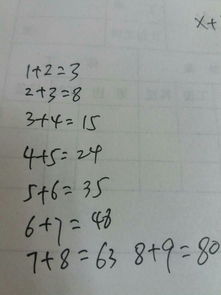 x+
1+2=3
2+3=8
3+4=15
4+5=24
5+6=35
6+7=48
7+8=63 8+9=80